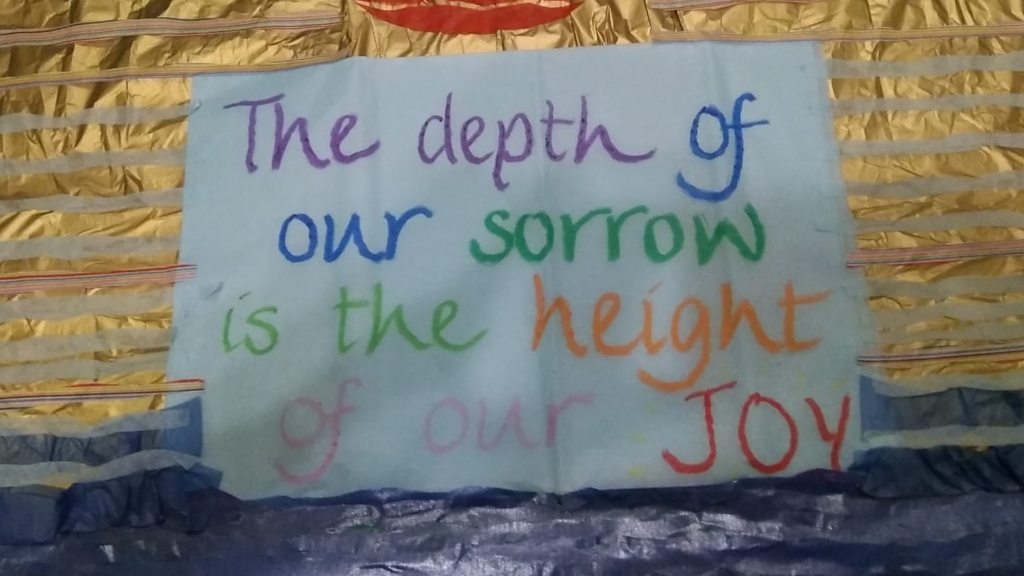 The depth of
our sorrow
is the height
of our JOY